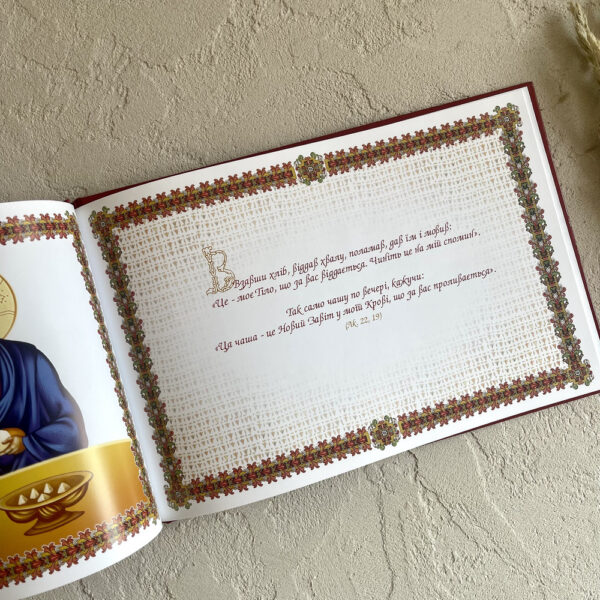 Взавши хліб, віддав хвалу, поламав, дав їм і мовив:
«Це - моє Тіло, що за вас віддається. Чиніть це на мій спомин».
Так само чашу по вечері, кажучи:
«Ця чаша - це Новий Завіт у моїй Крові, що за вас проливається».
(Лк. 22, 19)